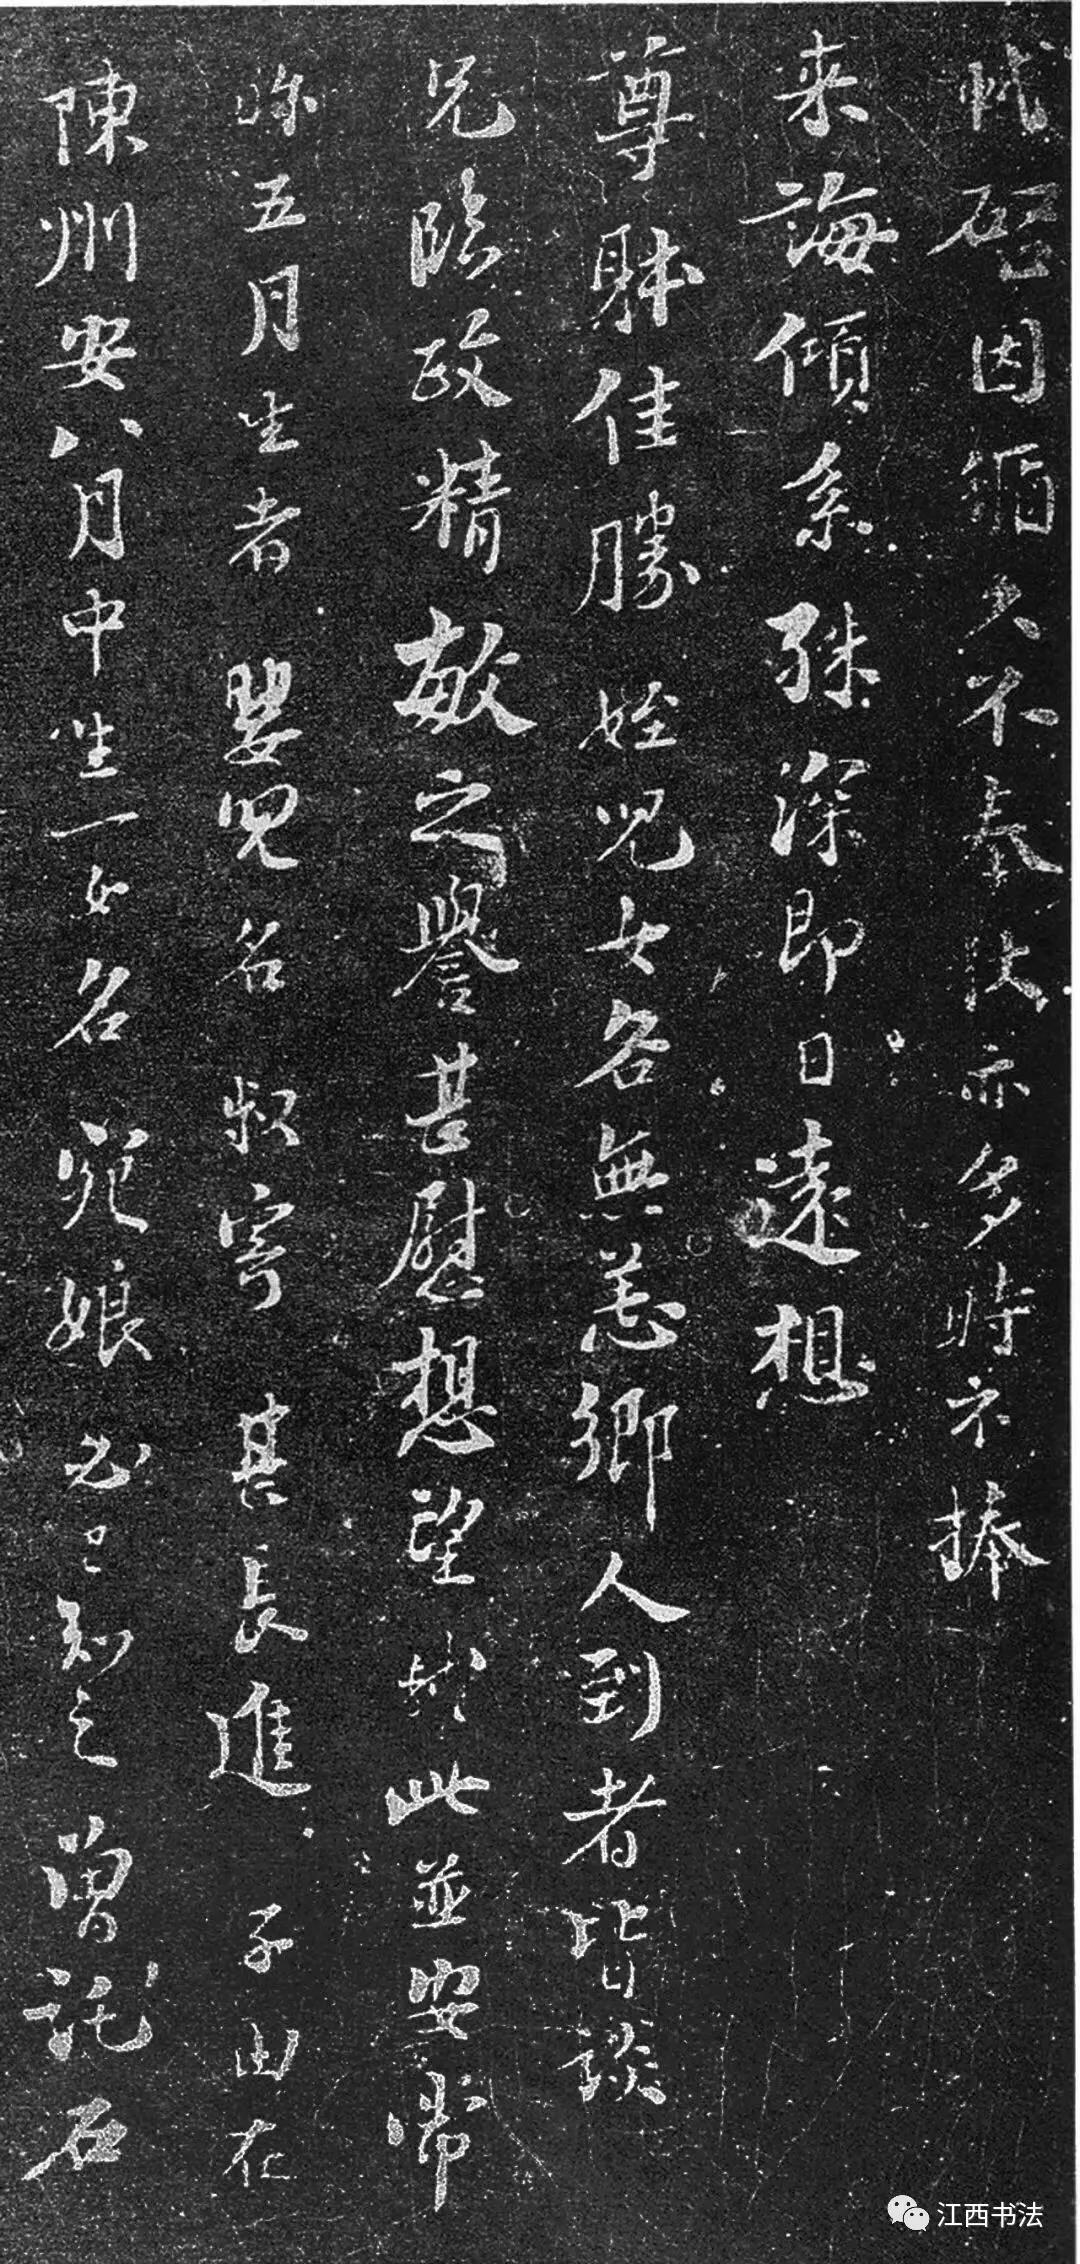 軾啓因循久不奉狀亦多時不捧
来誨傾系殊深即日遠想
尊躰佳勝姪兒女各無恙鄉人到者皆談
兄臨政精敏之譽甚慰想望軾此並安常
弥五月生者嬰兒名叔寄甚長進子由在
陳州安八月中生一女名宛娘必已知之曾託石
江西书法